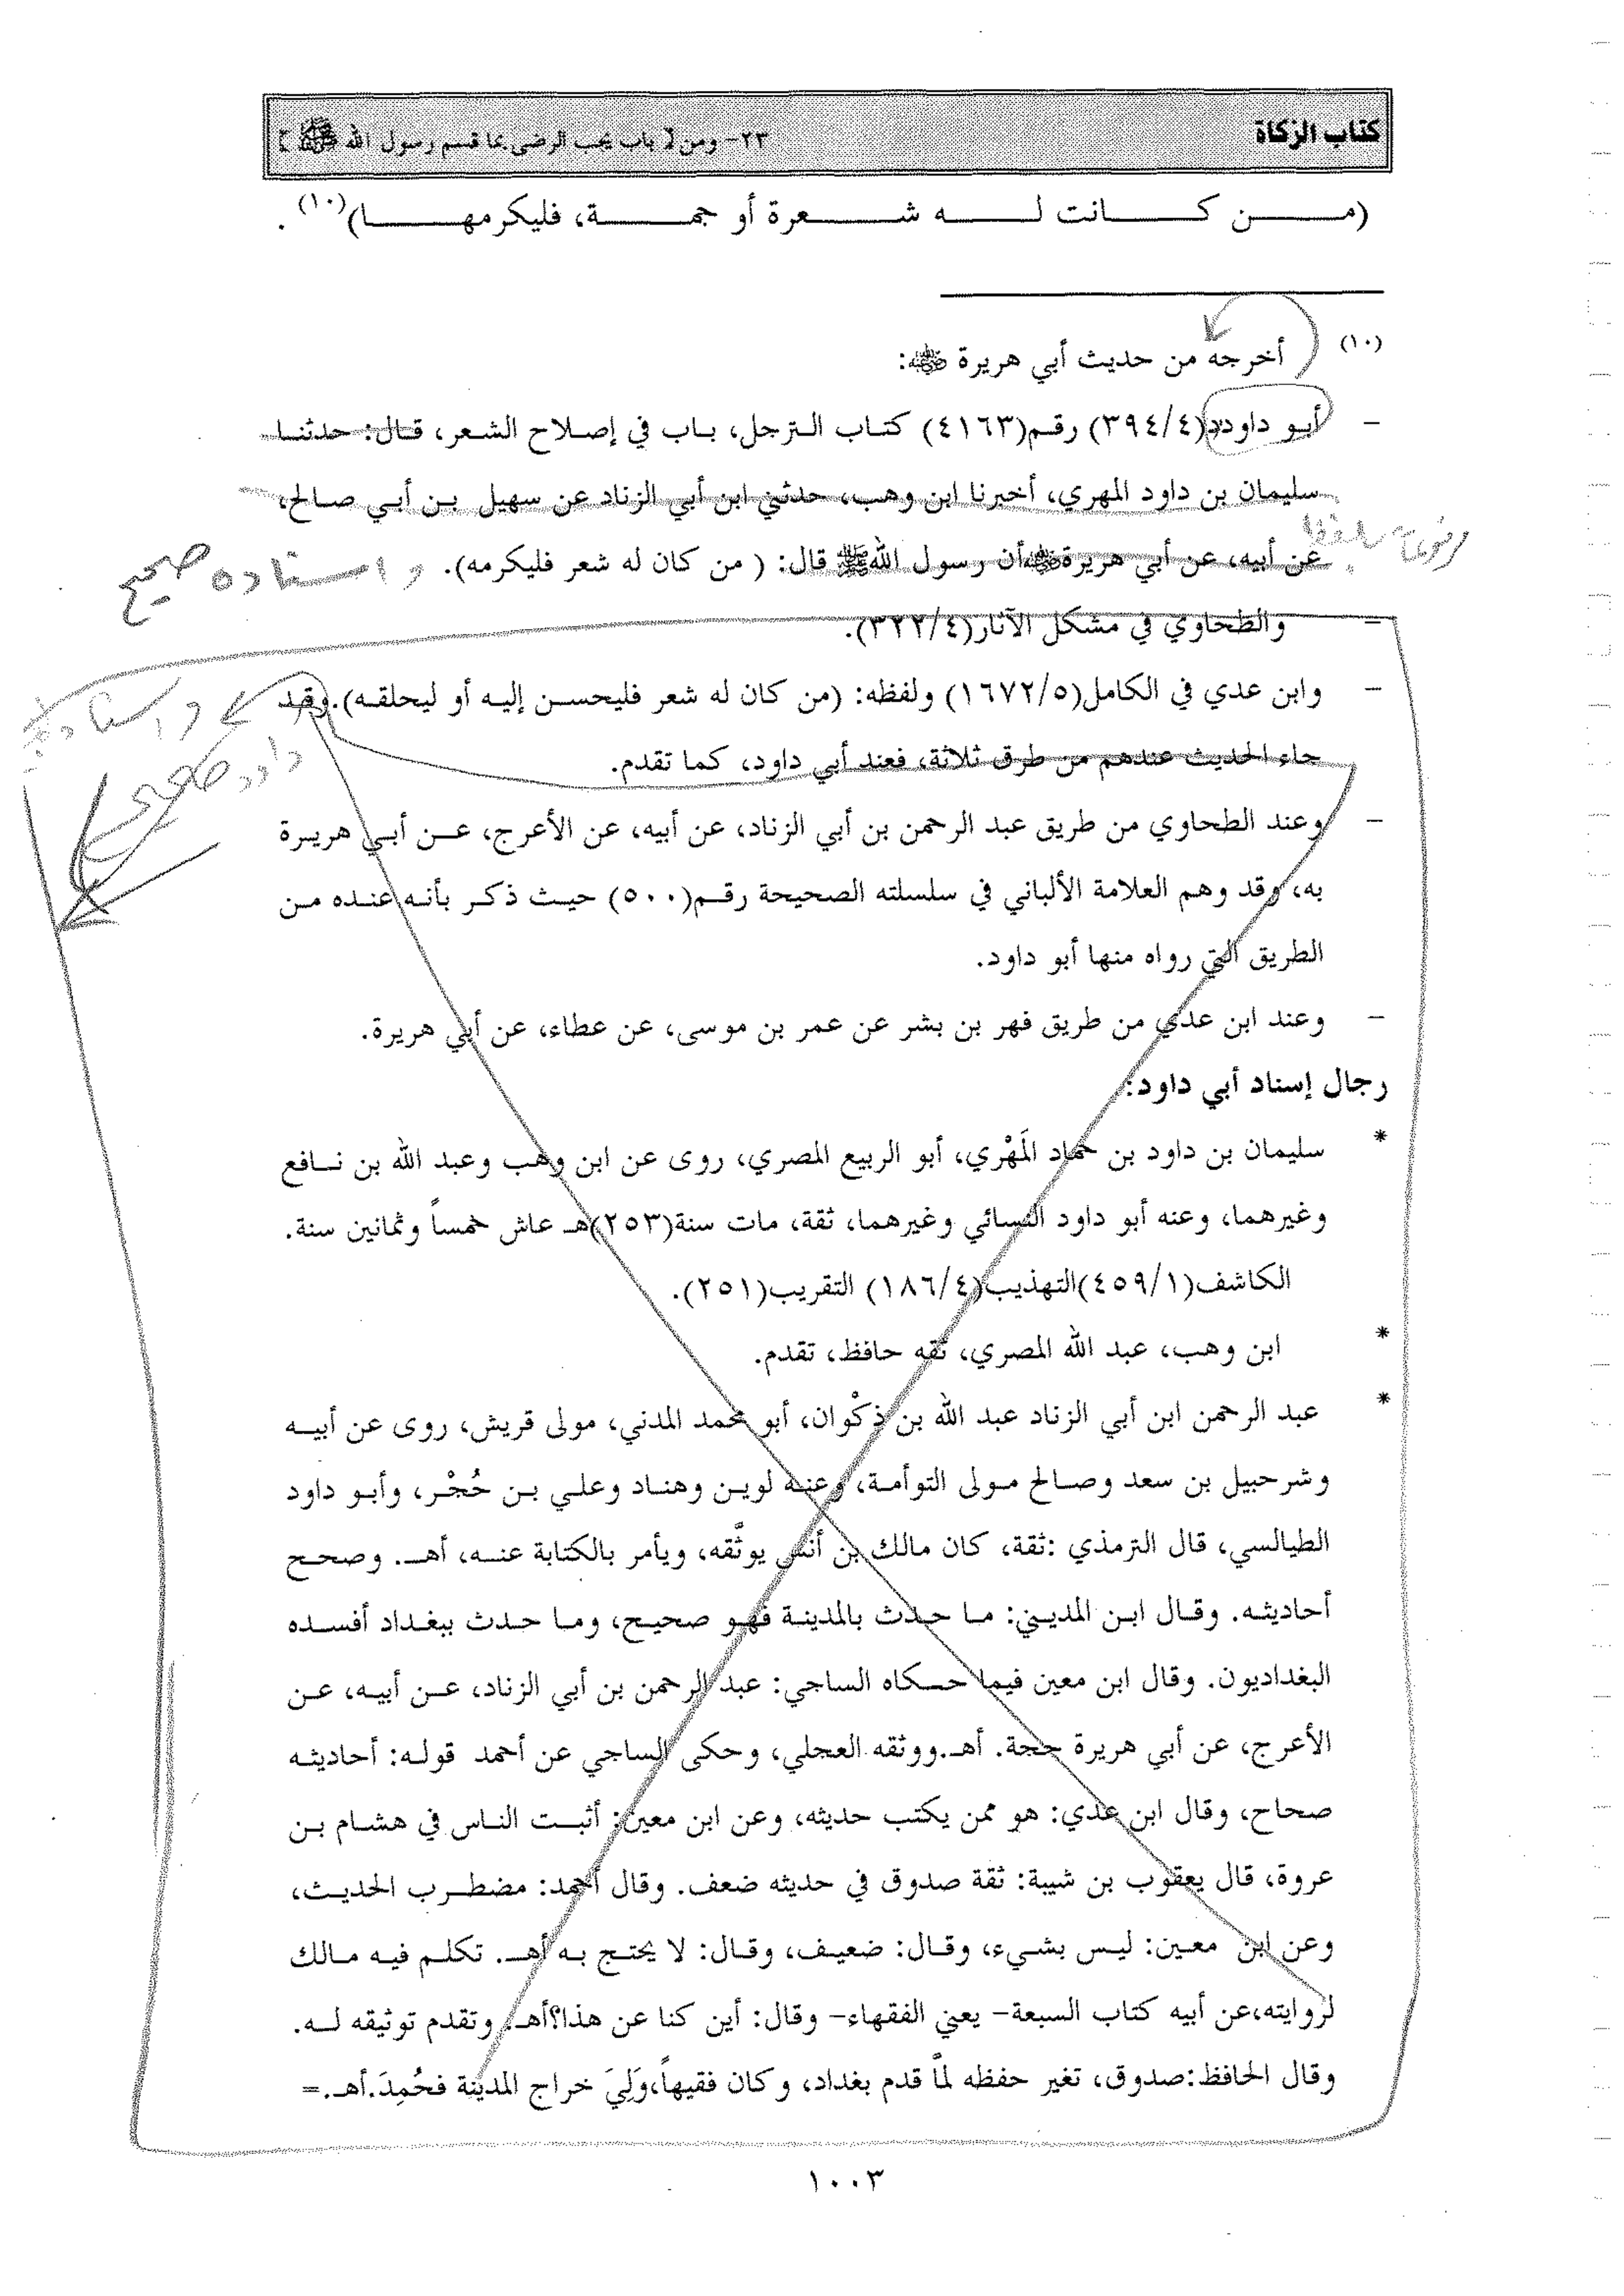 كتاب الزكاة
٢٣- ومن لا باب يجب الرضى بما قسم رسول الله ﷺ ]
(مـــن كـــانت لـــه شـــعرة أو جمـــة، فليكرمهـــا)(١٠).
(١٠) أخرجه من حديث أبي هريرة ﷺ:
- أبـو داودد(٣٩٤/٤) رقـم(٤١٦٣) كتـاب الـترجل، بـاب في إصـلاح الشـعر، قـال: حدثنـا
سليمان بن داود المهري، أخبرنا ابن وهب، حدثني ابن أبي الزناد عن سهيل بـن أبـي صـالح،
عن أبيه، عن أبي هريرة ﷺ أن رسول الله ﷺ قال: ( من كان له شعر فليكرمه). واسناده صحيح
مرفوعا بلفظ
- والطحاوي في مشكل الآثار(٣٢٢/٤).
- وابن عدي في الكامل(١٦٧٢/٥) ولفظه: (من كان له شعر فليحسـن إليـه أو ليحلقـه).وقـد
واسناد
جاء الحديث عندهم من طرق ثلاثة، فعند أبي داود، كما تقدم.
داود صحيح
- وعند الطحاوي من طريق عبد الرحمن بن أبي الزناد، عن أبيه، عن الأعرج، عـن أبـي هريـرة
به، وقد وهم العلامة الألباني في سلسلته الصحيحة رقـم(٥٠٠) حيـث ذكـر بأنـه عنـده مـن
الطريق التي رواه منها أبو داود.
- وعند ابن عدي من طريق فهر بن بشر عن عمر بن موسى، عن عطاء، عن أبي هريرة.
رجال إسناد أبي داود:
* سليمان بن داود بن حماد المَهْري، أبو الربيع المصري، روى عن ابن وهب وعبد الله بن نـافع
وغيرهما، وعنه أبو داود النسائي وغيرهما، ثقة، مات سنة(٢٥٣)هـ عاش خمساً وثمانين سنة.
الكاشف(٤٥٩/١)التهذيب(١٨٦/٤) التقريب(٢٥١).
* ابن وهب، عبد الله المصري، ثقه حافظ، تقدم.
* عبد الرحمن ابن أبي الزناد عبد الله بن ذِكْوان، أبو محمد المدني، مولى قريش، روى عن أبيـه
وشرحبيل بن سعد وصـالح مـولى التوأمـة، وعنـه لويـن وهنـاد وعلـي بـن حُجْـر، وأبـو داود
الطيالسي، قال الترمذي :ثقة، كان مالك بن أنس يوثَّقه، ويأمر بالكتابة عنـه، أهـ. وصحـح
أحاديثـه. وقـال ابـن المديـني: مـا حـدث بالمدينـة فهـو صحيـح، ومـا حـدث ببغـداد أفسـده
البغداديون. وقال ابن معين فيما حـكاه الساجي: عبد الرحمن بن أبي الزناد، عـن أبيـه، عـن
الأعرج، عن أبي هريرة حجة. أهـ.ووثقه العجلي، وحكى الساجي عن أحمد قولـه: أحاديثـه
صحاح، وقال ابن عدي: هو ممن يكتب حديثه، وعن ابن معين: أثبـت النـاس في هشـام بـن
عروة، قال يعقوب بن شيبة: ثقة صدوق في حديثه ضعف. وقال أحمد: مضطـرب الحديـث،
وعن ابن معـين: ليـس بشـيء، وقـال: ضعيـف، وقـال: لا يحتـج بـه أهـ. تكلـم فيـه مـالك
لروايته،عن أبيه كتاب السبعة- يعني الفقهاء- وقال: أين كنا عن هذا؟أهـ. وتقدم توثيقه لـه.
وقال الحافظ:صدوق، تغير حفظه لمّا قدم بغداد، وكان فقيهاً،وَلِيَ خراج المدينة فحُمِدَ.أهـ.=
١٠٠٣